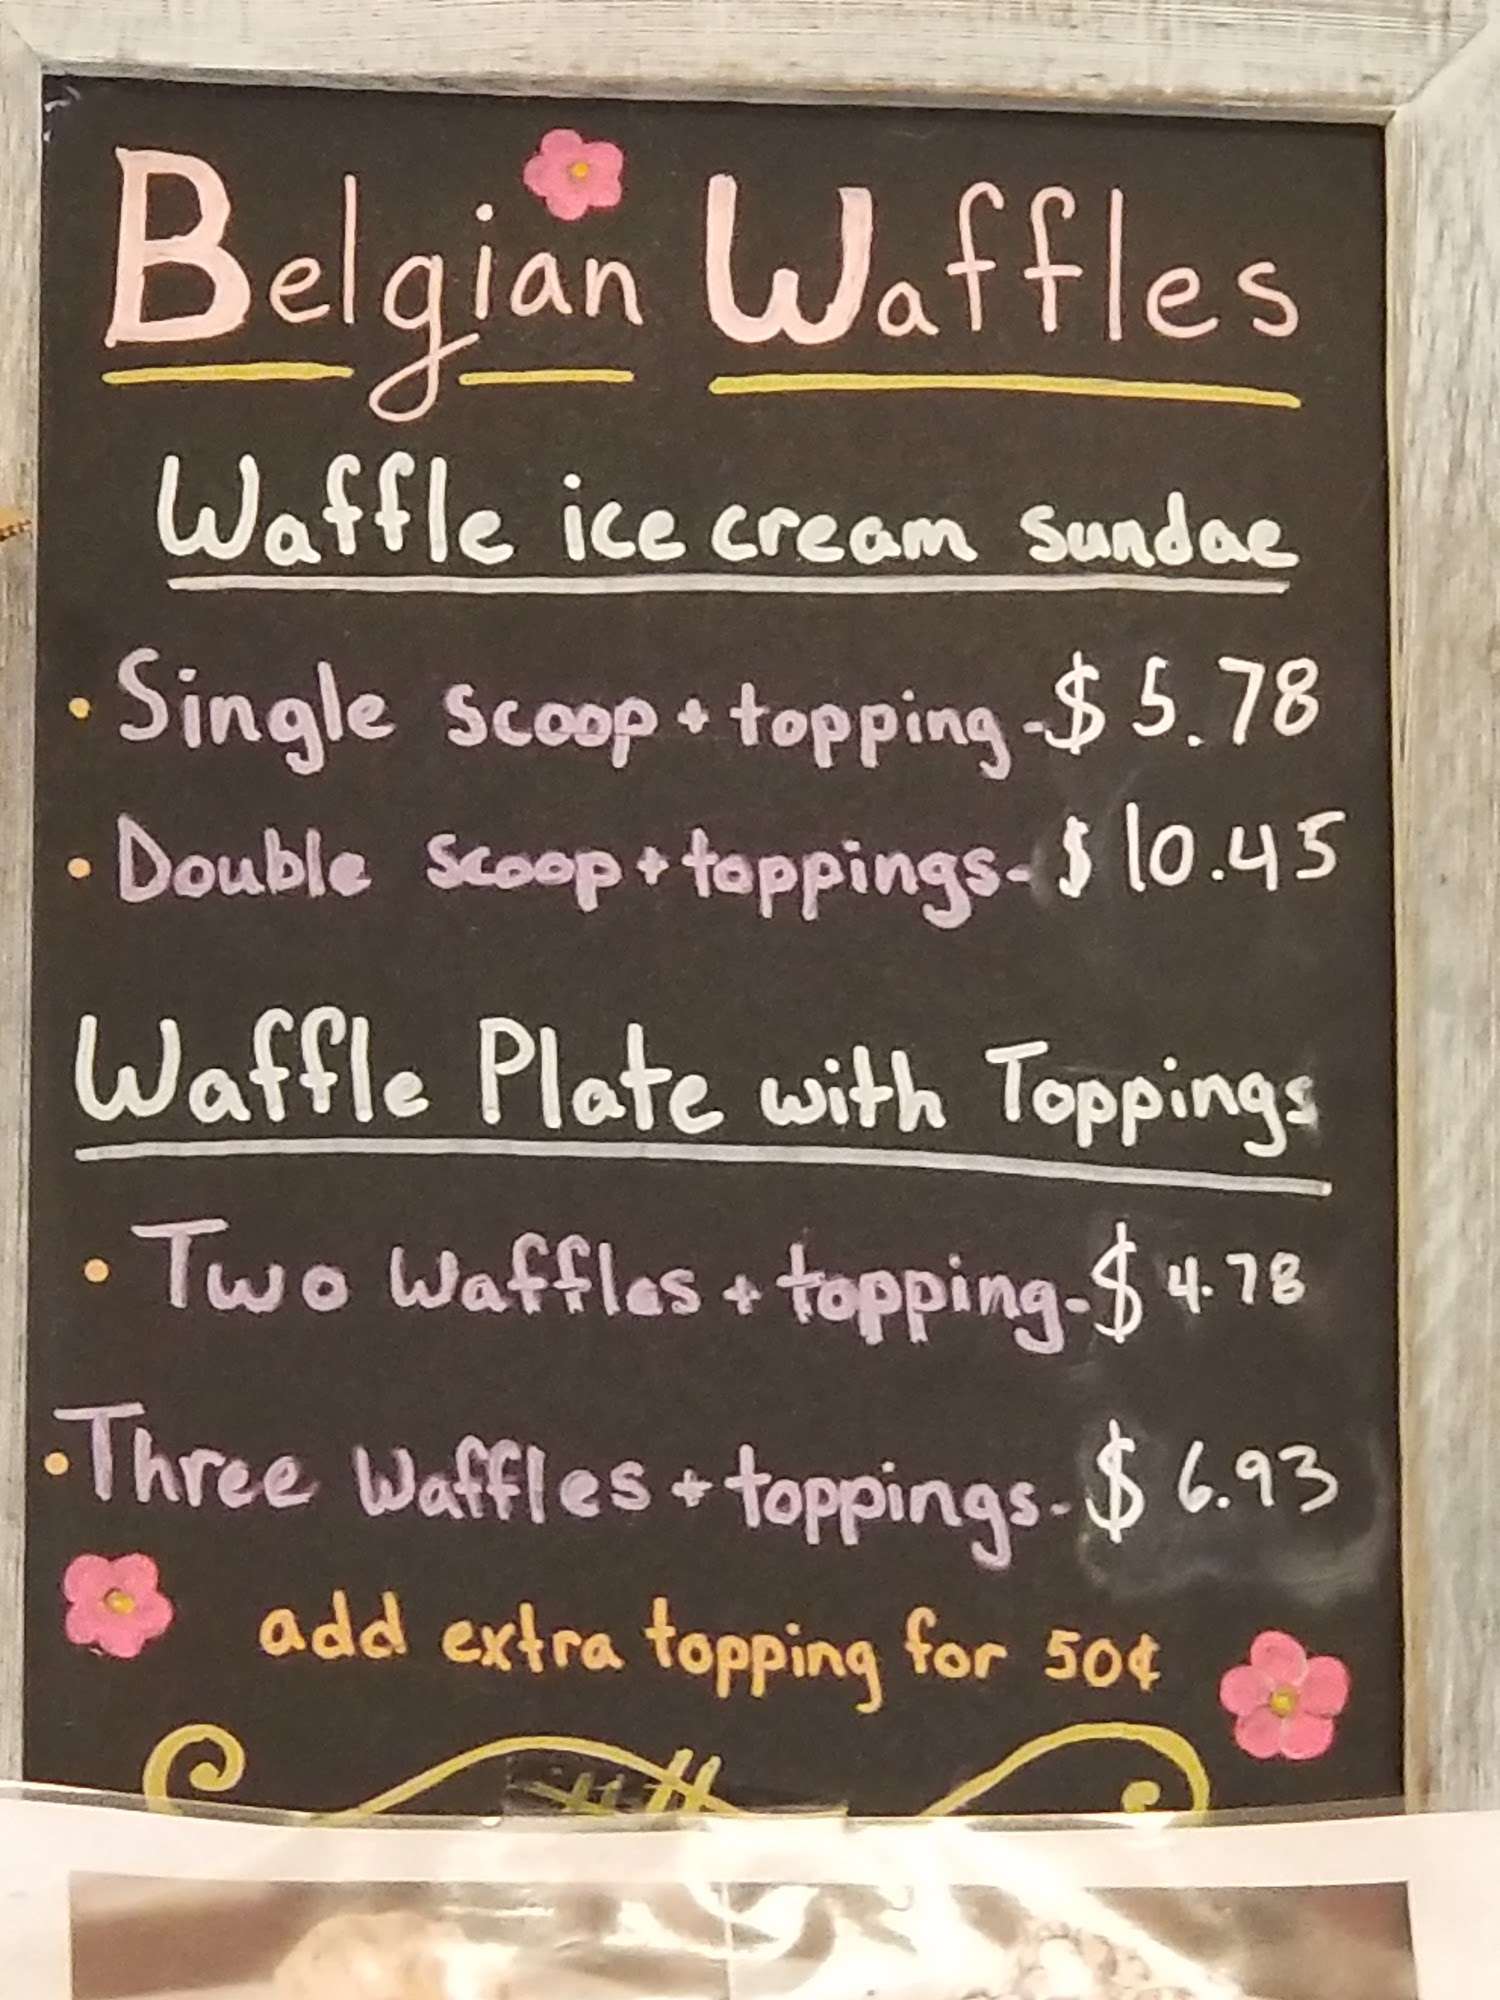 Belgian Waffles
Waffle ice cream sundae
• Single scoop + topping - $5.78
• Double scoop + toppings - $10.45
Waffle Plate with Toppings
• Two Waffles + topping - $4.78
• Three Waffles + toppings - $6.93
add extra topping for 50¢